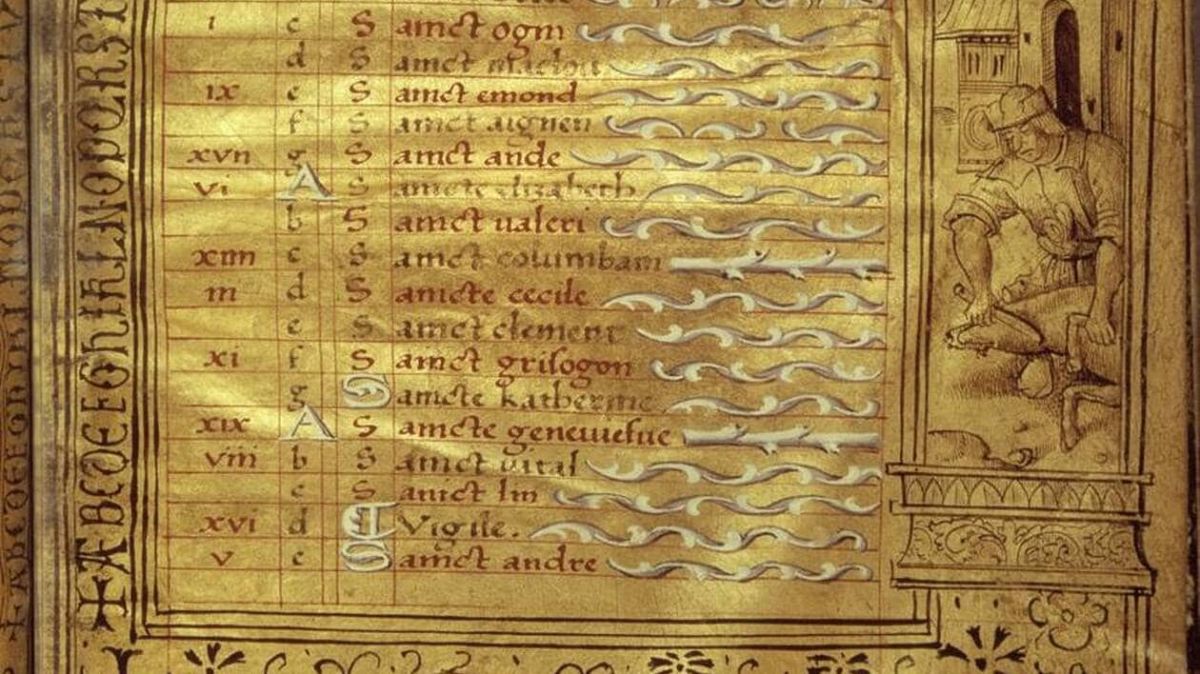 i c Sainct ogni
d Sainct maclou
ix e Sainct emond
f Sainct aignen
xvii g Sainct ande
vi A Saincte elizabeth
b Sainct ualeri
xiiii c Sainct coulmbam
iii d Saincte cecile
e Sainct clement
xi f Sainct grisogon
g Saincte katherine
xix A Saincte geneuiefue
viii b Sainct vital
c Sainct lin
xvi d Vigile.
v e Sainct andre